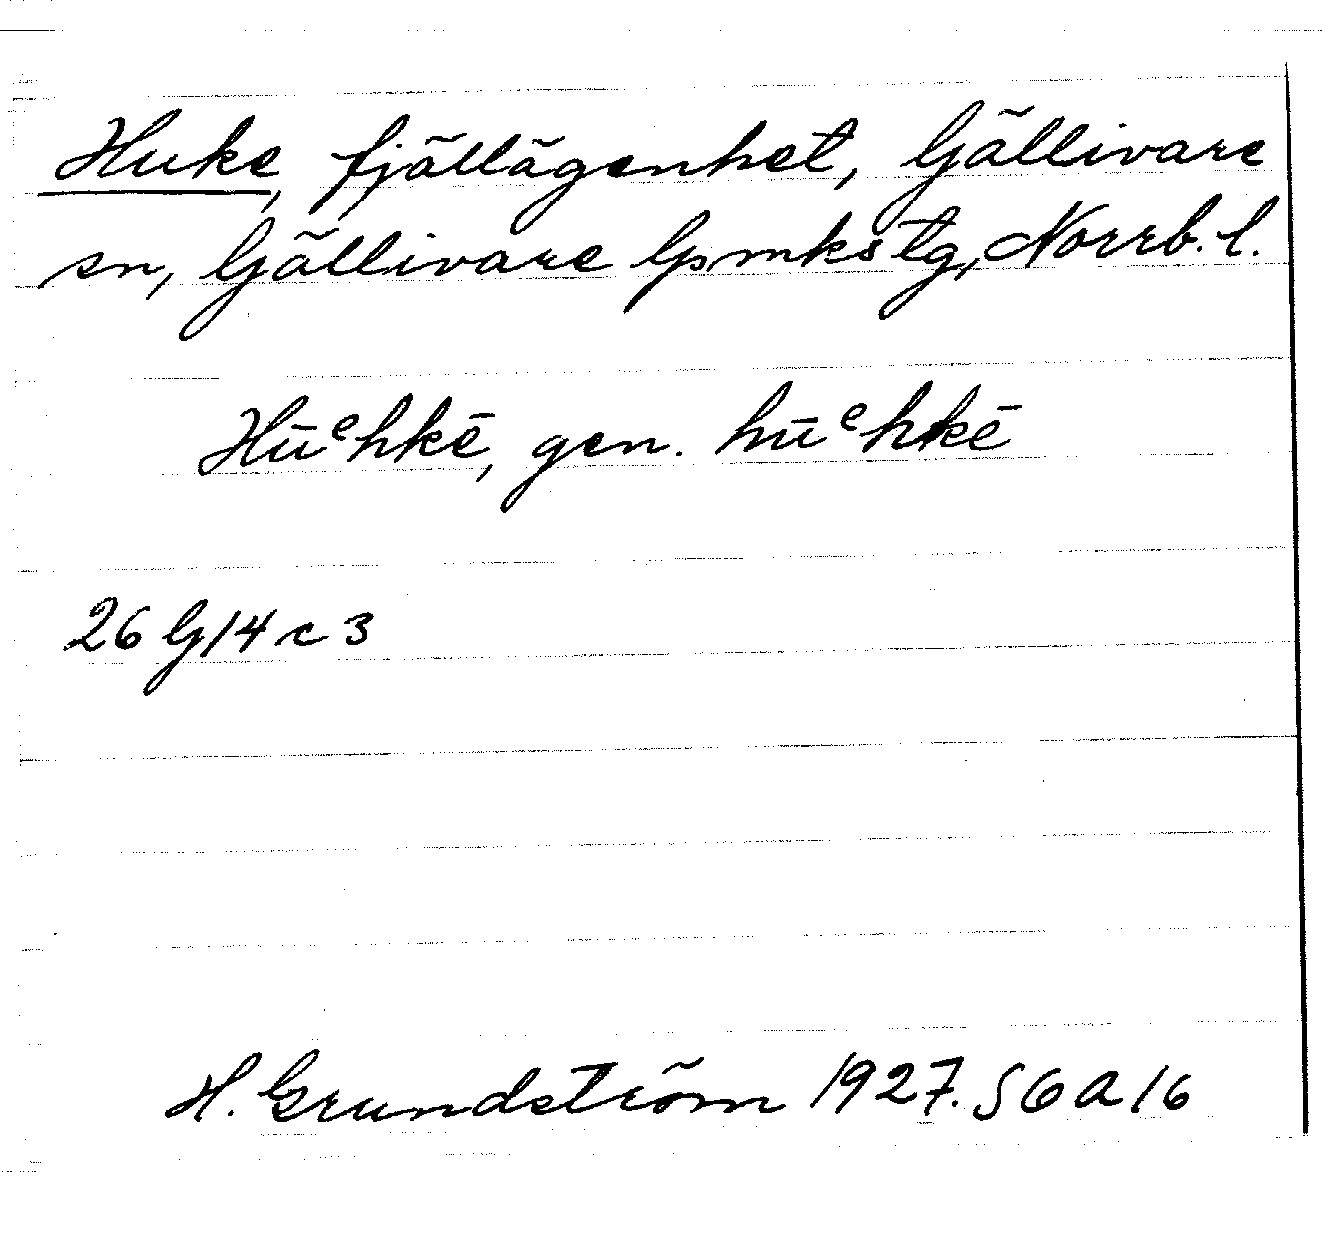 Huke, fjällägenhet, Gällivare
sn, Gällivare lpmkstg, Norrb. l.
Hūᵉhkē, gen. hūᵉhkē
26 G/4 c 3
H. Grundström 1927. SGA 16